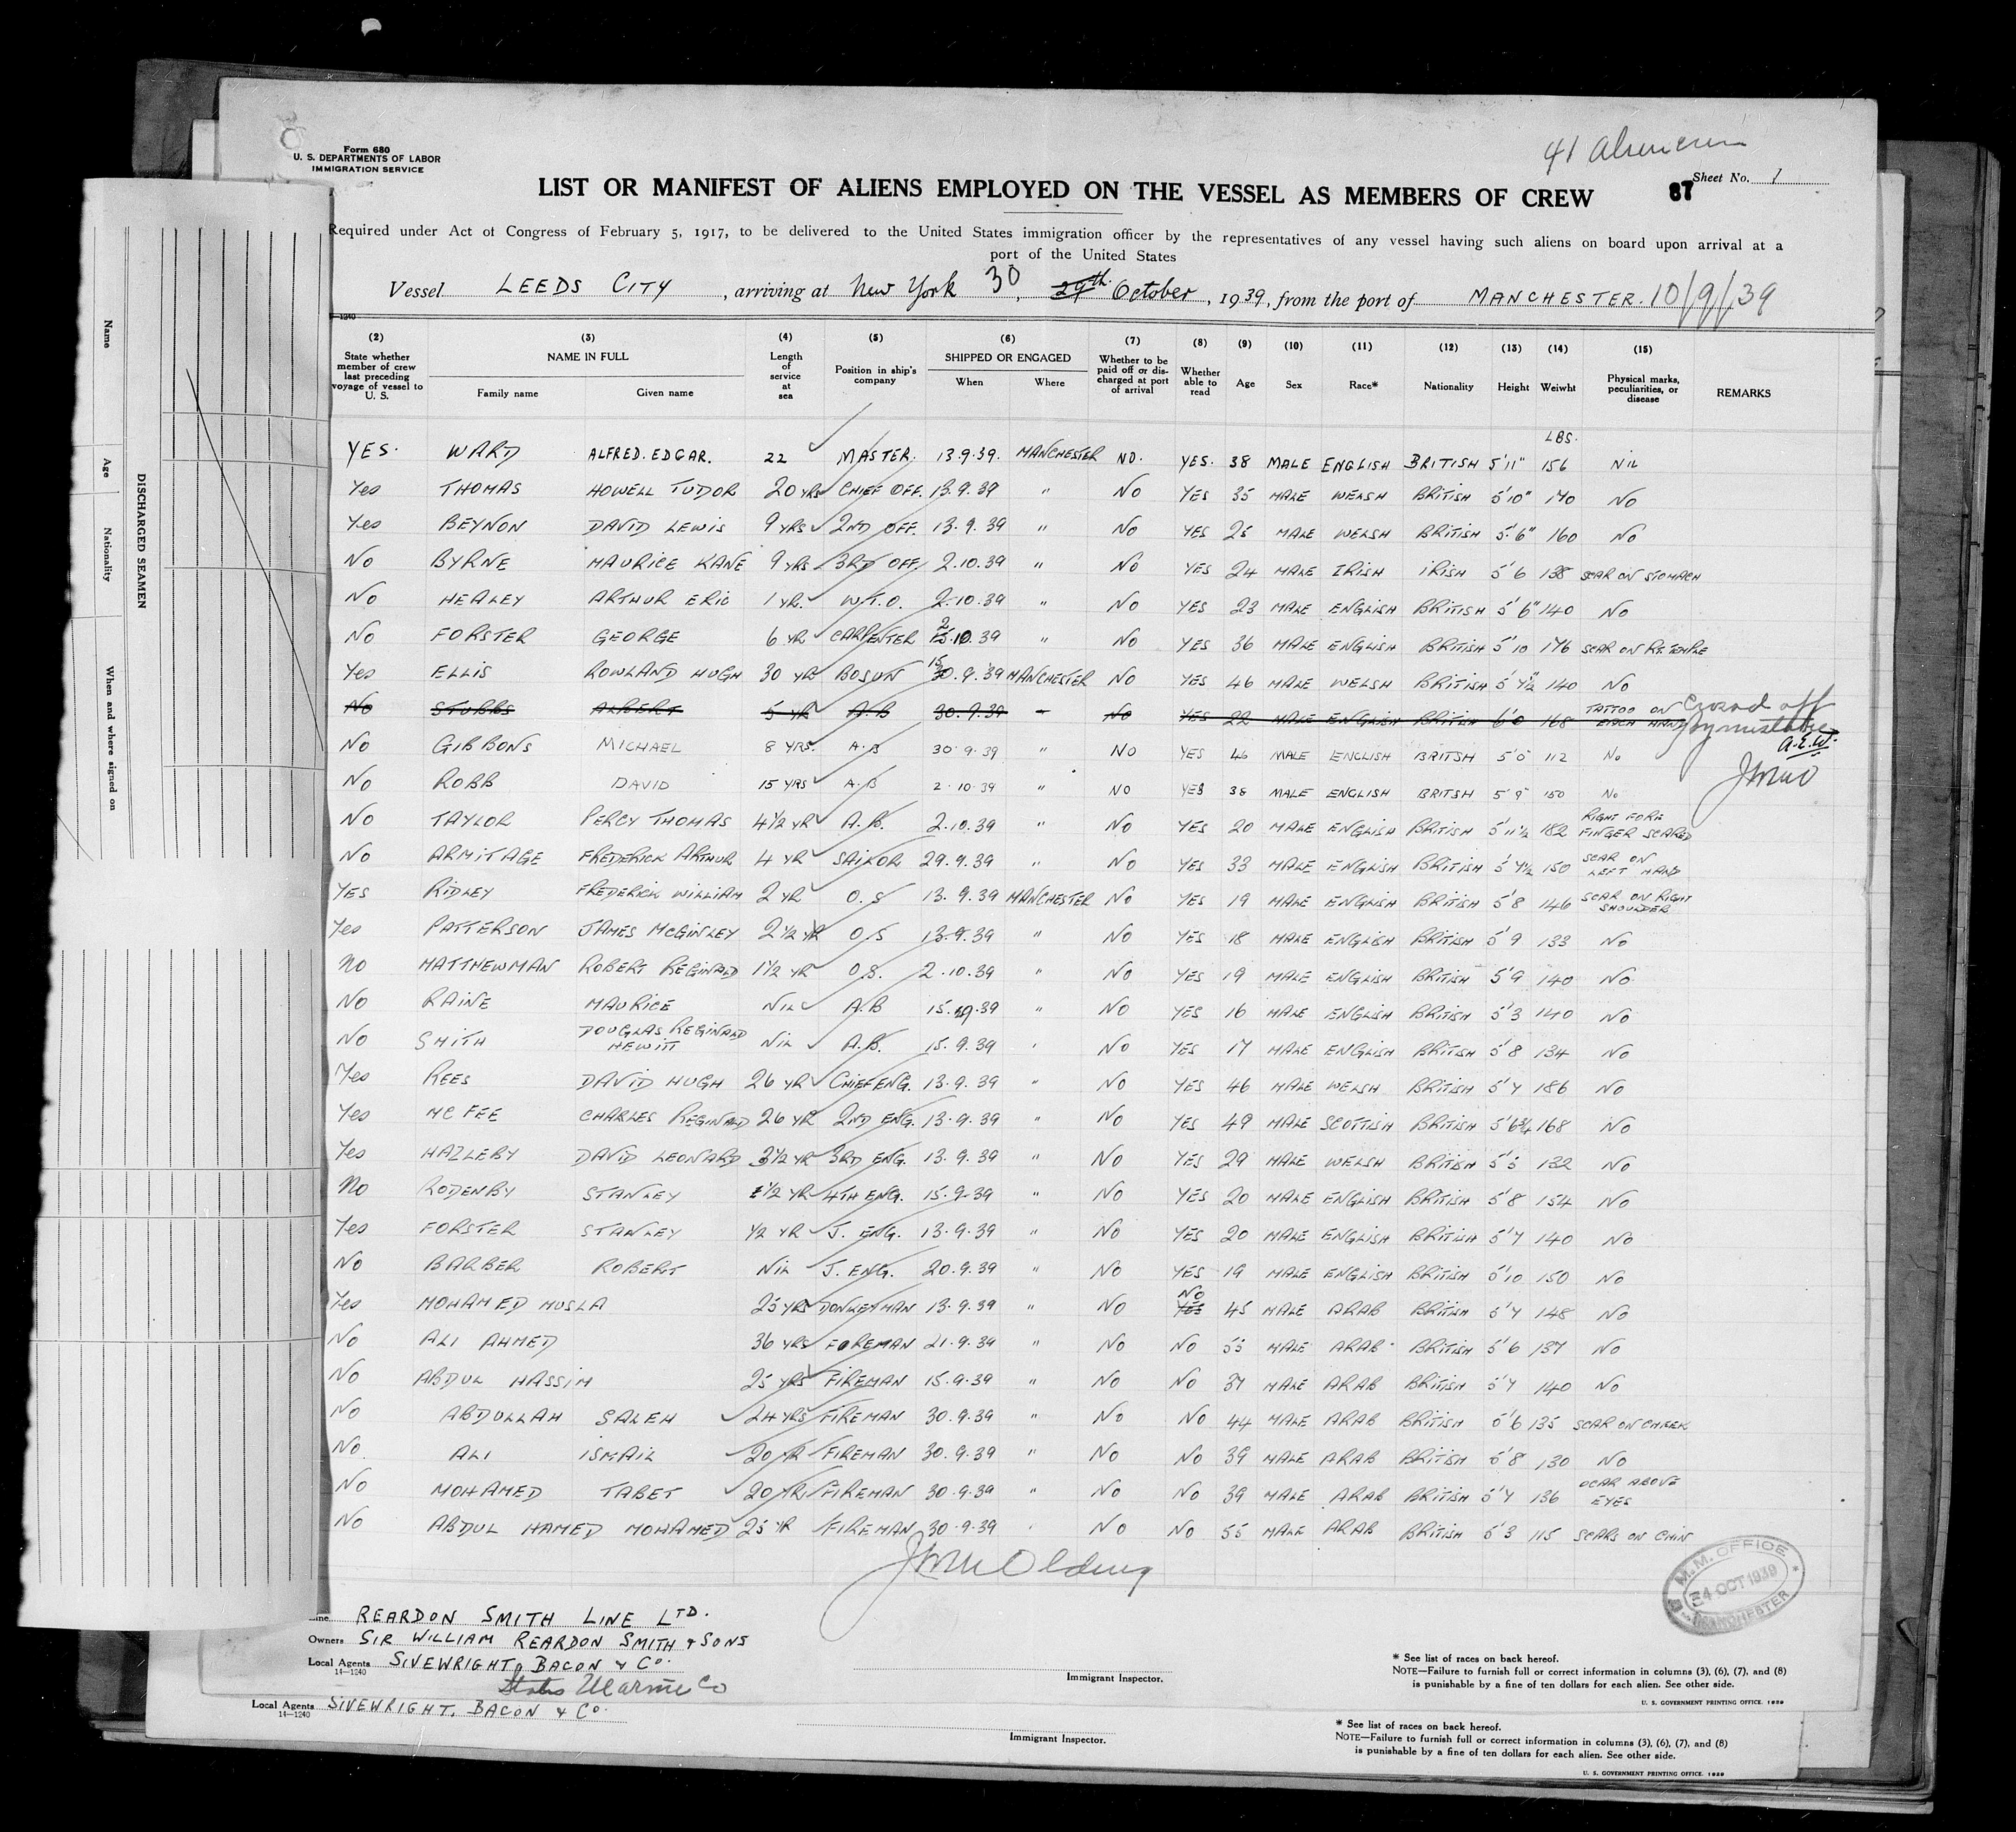 41 Alien crew
Form 680
U. S. DEPARTMENTS OF LABOR
IMMIGRATION SERVICE
Sheet No. 1
LIST OR MANIFEST OF ALIENS EMPLOYED ON THE VESSEL AS MEMBERS OF CREW 87
Required under Act of Congress of February 5, 1917, to be delivered to the United States immigration officer by the representatives of any vessel having such aliens on board upon arrival at a
port of the United States
Vessel LEEDS CITY, arriving at New York 30, 29th October, 1939, from the port of MANCHESTER. 10/9/39
(2) (3) (4) (5) (6) (7) (8) (9) (10) (11) (12) (13) (14) (15)
State whether member of crew last preceding voyage of vessel to U. S. NAME IN FULL Family name Given name Length of service at sea Position in ship's company SHIPPED OR ENGAGED When Where Whether to be paid off or discharged at port of arrival Whether able to read Age Sex Race* Nationality Height Weiwht Physical marks, peculiarities, or disease REMARKS
LBS.
YES. WARD ALFRED. EDGAR. 22 MASTER. 13.9.39. MANCHESTER NO. YES. 38 MALE ENGLISH BRITISH 5'11" 156 NIL
Yes THOMAS HOWELL TUDOR 20 YRS CHIEF OFF. 13.9.39 " No YES 35 MALE WELSH BRITISH 5'10" 170 No
Yes BEYNON DAVID LEWIS 9 YRS 2ND OFF. 13.9.39 " No YES 25 MALE WELSH BRITISH 5'6" 160 No
No BYRNE MAURICE KANE 9 YRS 3RD OFF. 2.10.39 " No YES 24 MALE IRISH IRISH 5'6 138 SCAR ON STOMACH
No HEALEY ARTHUR ERIC 1 YR. W.T.O. 2.10.39 " No YES 23 MALE ENGLISH BRITISH 5'6" 140 No
No FORSTER GEORGE 6 YR CARPENTER 2.10.39 " No YES 36 MALE ENGLISH BRITISH 5'10 176 SCAR ON RT. TEMPLE
Yes ELLIS ROWLAND HUGH 30 YR BOSUN 15.9.39 MANCHESTER NO YES 46 MALE WELSH BRITISH 5'7½" 140 No
No STUBBS ALBERT 5 YR A.B 30.9.39 No YES 22 MALE ENGLISH BRITISH 6'0 168 TATTOO ON EACH ARM Crossed off by mistake A.E.W.
No GIBBONS MICHAEL 8 YRS. A.B 30.9.39 " No YES 46 MALE ENGLISH BRITSH 5'5 112 No
No ROBB DAVID 15 YRS A.B 2.10.39 " NO YES 38 MALE ENGLISH BRITSH 5'9 150 No
No TAYLOR PERCY THOMAS 4½ YR A.B. 2.10.39 " No YES 20 MALE ENGLISH BRITISH 5'11½ 182 RIGHT FORE FINGER SCARED
No ARMITAGE FREDERICK ARTHUR 4 YR SAILOR 29.9.39 " No YES 33 MALE ENGLISH BRITISH 5'7½ 150 SCAR ON LEFT HAND
YES RIDLEY FREDERICK WILLIAM 2 YR O.S 13.9.39 MANCHESTER No YES 19 MALE ENGLISH BRITISH 5'8 146 SCAR ON RIGHT SHOULDER
Yes PATTERSON JAMES McGINLEY 2½ YR O.S 13.9.39 " No YES 18 MALE ENGLISH BRITISH 5'9 133 No
No MATTHEWMAN ROBERT REGINALD 1½ YR O.S. 2.10.39 " No YES 19 MALE ENGLISH BRITISH 5'9 140 No
No RAINE MAURICE NIL A.B 15.9.39 " No YES 16 MALE ENGLISH BRITISH 5'3 140 No
No SMITH DOUGLAS REGINALD HEWITT NIL A.B. 15.9.39 " No YES 17 MALE ENGLISH BRITISH 5'8 134 No
Yes REES DAVID HUGH 26 YR CHIEF ENG. 13.9.39 " No YES 46 MALE WELSH BRITISH 5'7 186 No
Yes MC FEE CHARLES REGINALD 26 YR 2ND ENG. 13.9.39 " No YES 49 MALE SCOTTISH BRITISH 5'6¾ 168 No
Yes HAZLEBY DAVID LEONARD 3½ YR 3RD ENG. 13.9.39 " No YES 29 MALE WELSH BRITISH 5'5 132 No
No RODENBY STANLEY ½ YR 4TH ENG. 15.9.39 " No YES 20 MALE ENGLISH BRITISH 5'8 154 No
Yes FORSTER STANLEY ½ YR J. ENG. 13.9.39 " No YES 20 MALE ENGLISH BRITISH 5'7 140 No
No BARBER ROBERT NIL J. ENG. 20.9.39 " No YES 19 MALE ENGLISH BRITISH 5'10 150 No
Yes MOHAMED MUSLA 25 YRS DONKEYMAN 13.9.39 " No No YES 45 MALE ARAB BRITISH 5'7 148 No
No ALI AHMED 36 YRS FOREMAN 21.9.39 " No No 55 MALE ARAB BRITISH 5'6 137 No
No ABDUL HASSIM 25 YRS FIREMAN 15.9.39 " No No 37 MALE ARAB BRITISH 5'7 140 No
No ABDULLAH SALEH 24 YRS FIREMAN 30.9.39 " No No 44 MALE ARAB BRITISH 5'6 135 SCAR ON CHEEK
No ALI ISMAIL 20 YR FIREMAN 30.9.39 " No No 39 MALE ARAB BRITISH 5'8 130 No
No MOHAMED TABET 20 YR FIREMAN 30.9.39 " No No 39 MALE ARAB BRITISH 5'7 136 SCAR ABOVE EYES
No ABDUL HAMED MOHAMED 25 YR FIREMAN 30.9.39 " No No 55 MALE ARAB BRITISH 5'3 115 SCARS ON CHIN
M.M. OFFICE
4 OCT 1939
MANCHESTER
Line REARDON SMITH LINE LTD.
Owners SIR WILLIAM REARDON SMITH & SONS
Local Agents SIVEWRIGHT, BACON & Co.
14—1240
States Marine Co
Immigrant Inspector.
* See list of races on back hereof.
NOTE—Failure to furnish full or correct information in columns (3), (6), (7), and (8)
is punishable by a fine of ten dollars for each alien. See other side.
U. S. GOVERNMENT PRINTING OFFICE. 1939
Local Agents SIVEWRIGHT, BACON & Co.
14—1240
Immigrant Inspector.
* See list of races on back hereof.
NOTE—Failure to furnish full or correct information in columns (3), (6), (7), and (8)
is punishable by a fine of ten dollars for each alien. See other side.
U. S. GOVERNMENT PRINTING OFFICE. 1939
DISCHARGED SEAMEN
Name
Age
Nationality
When and where signed on